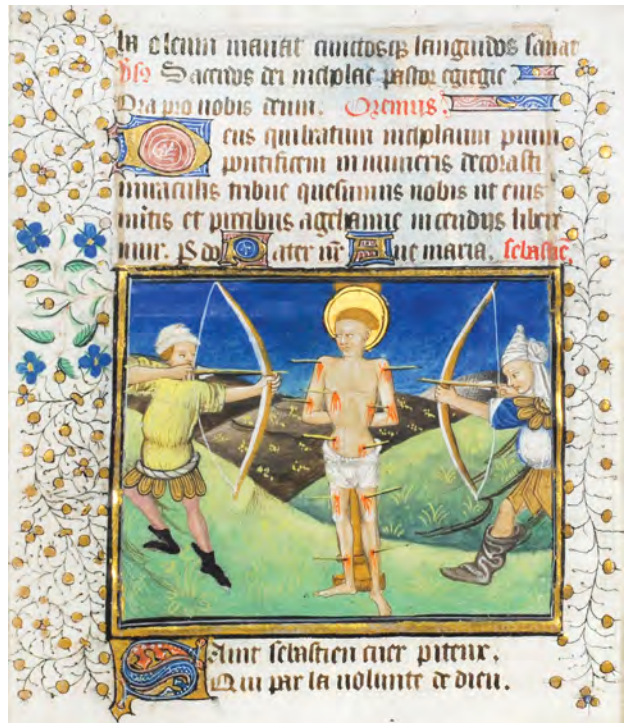 la oleum manat cunctosq; languidos sanat
Sacerdos dei nicholae pastor egregie
Ora pro nobis deum. Oremus.
Deus qui beatum nicholaum pium
pontificem in numeris decorasti
miraculis tribue quesumus nobis ut eius
et precibus a gehenne incendijs libere
mur. P do Pater nr Aue maria. sebastie,
Saint sebastien cuer piteux.
Qui par la uolunte de dieu.